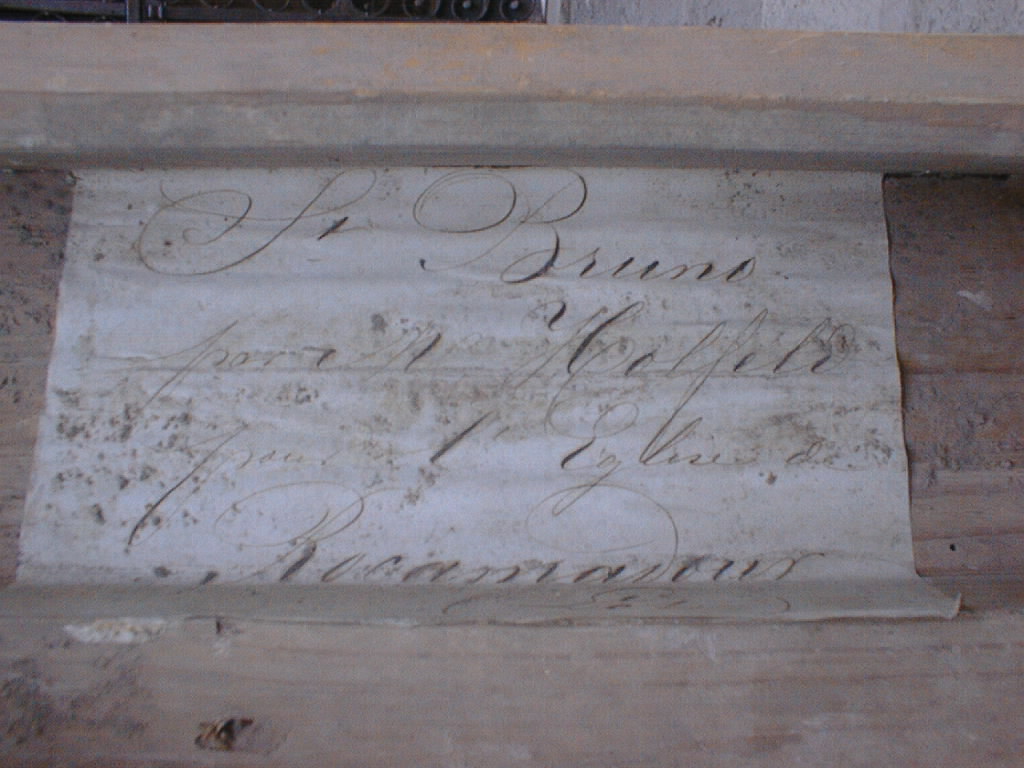 St Bruno
par Mr Holfeld
pour l'Eglise de
Rocamadour